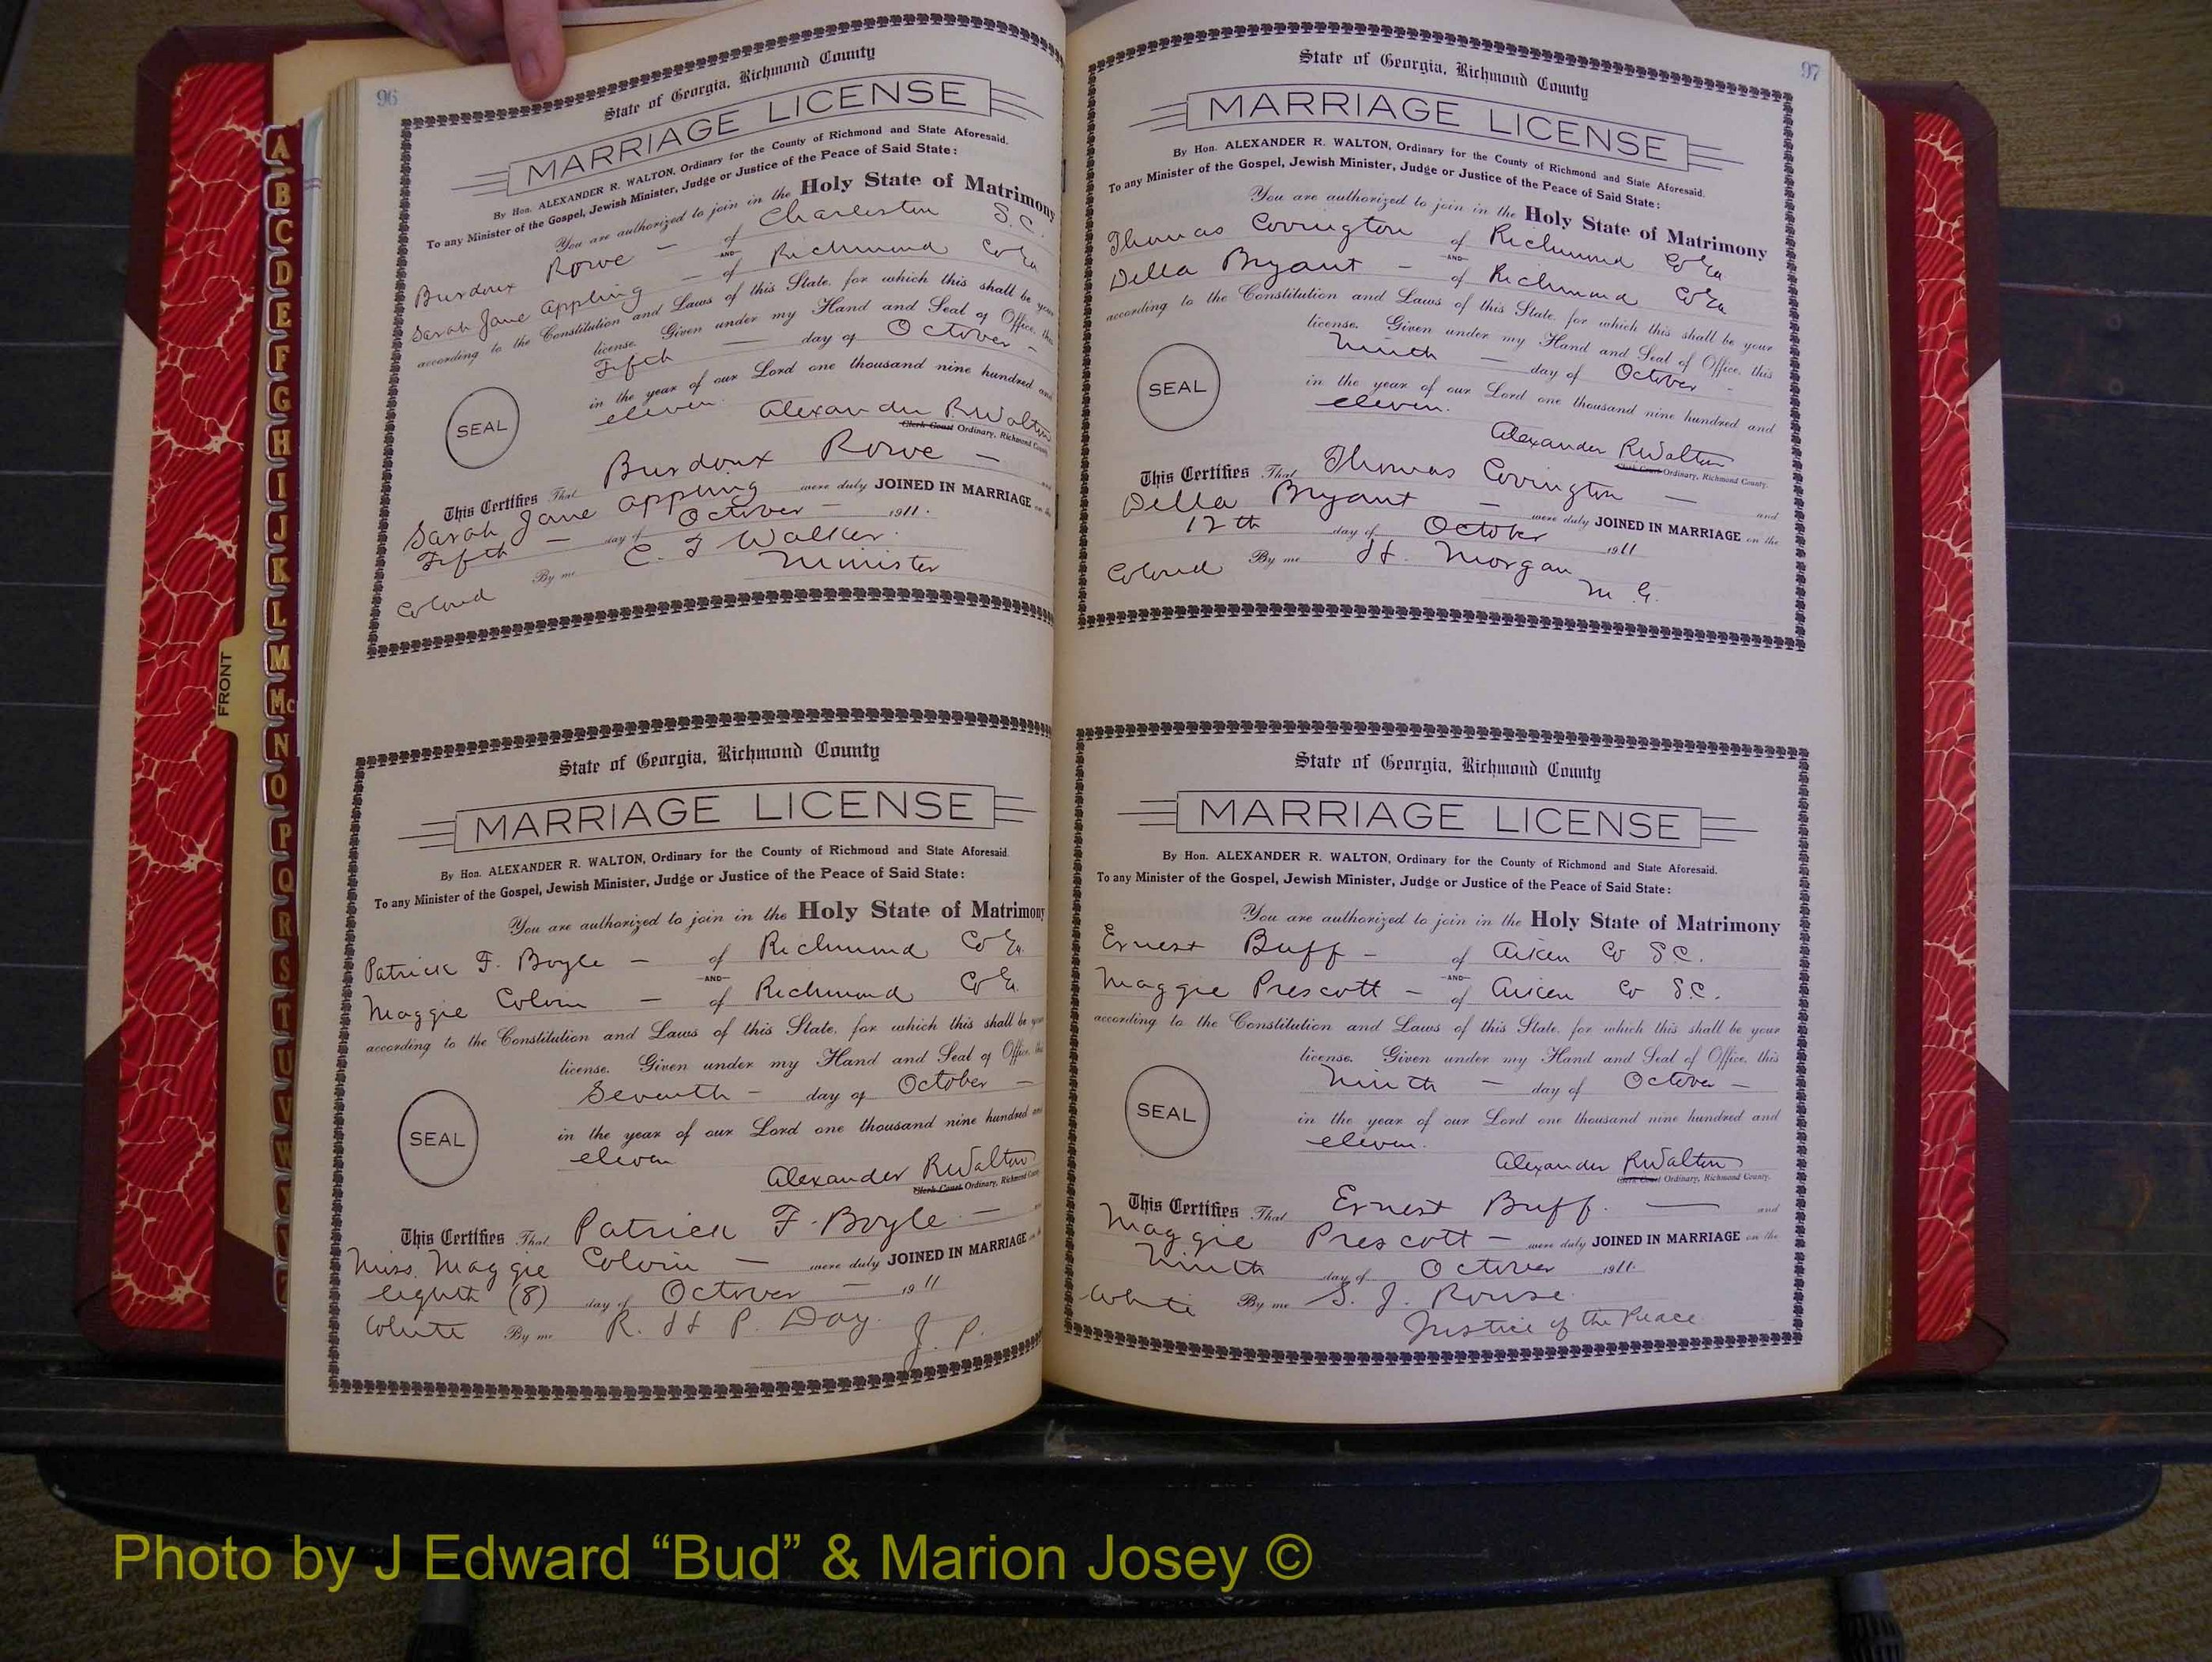 96
State of Georgia, Richmond County
MARRIAGE LICENSE
By Hon. ALEXANDER R. WALTON, Ordinary for the County of Richmond and State Aforesaid.
To any Minister of the Gospel, Jewish Minister, Judge or Justice of the Peace of Said State:
You are authorized to join in the Holy State of Matrimony
Burdoux Rowe — of Charleston S.C.
AND
Sarah Jane Appling — of Richmond Co Ga
according to the Constitution and Laws of this State, for which this shall be your
license. Given under my Hand and Seal of Office, this
Fifth — day of October —
in the year of our Lord one thousand nine hundred and
eleven.
SEAL
Alexander R Walton
Clerk Court Ordinary, Richmond County
This Certifies That Burdoux Rowe — and
Sarah Jane Appling were duly JOINED IN MARRIAGE on the
Fifth — day of October — 1911.
Colored By me C. T Walker.
Minister
State of Georgia, Richmond County
MARRIAGE LICENSE
By Hon. ALEXANDER R. WALTON, Ordinary for the County of Richmond and State Aforesaid.
To any Minister of the Gospel, Jewish Minister, Judge or Justice of the Peace of Said State:
You are authorized to join in the Holy State of Matrimony
Patrick F. Boyle — of Richmond Co Ga.
AND
Maggie Colvin — of Richmond Co Ga.
according to the Constitution and Laws of this State, for which this shall be your
license. Given under my Hand and Seal of Office, this
Seventh — day of October —
in the year of our Lord one thousand nine hundred and
eleven
SEAL
Alexander R Walton
Clerk Court Ordinary, Richmond County
This Certifies That Patrick F. Boyle —
Miss. Maggie Colvin — were duly JOINED IN MARRIAGE on the
eighth (8) day of October — 1911
White By me R. H P. Day.
J. P.
97
State of Georgia, Richmond County
MARRIAGE LICENSE
By Hon. ALEXANDER R. WALTON, Ordinary for the County of Richmond and State Aforesaid.
To any Minister of the Gospel, Jewish Minister, Judge or Justice of the Peace of Said State:
You are authorized to join in the Holy State of Matrimony
Thomas Covington of Richmond Co Ga
AND
Della Bryant — of Richmond Co Ga
according to the Constitution and Laws of this State, for which this shall be your
license. Given under my Hand and Seal of Office, this
Ninth — day of October -
in the year of our Lord one thousand nine hundred and
eleven.
SEAL
Alexander R Walton
Clerk Court Ordinary, Richmond County.
This Certifies That Thomas Covington — and
Della Bryant — were duly JOINED IN MARRIAGE on the
12th day of October 1911
Colored By me H. Morgan
M. G.
State of Georgia, Richmond County
MARRIAGE LICENSE
By Hon. ALEXANDER R. WALTON, Ordinary for the County of Richmond and State Aforesaid.
To any Minister of the Gospel, Jewish Minister, Judge or Justice of the Peace of Said State:
You are authorized to join in the Holy State of Matrimony
Ernest Buff — of Aiken Co S.C.
AND
Maggie Prescott — of Aiken Co S.C.
according to the Constitution and Laws of this State, for which this shall be your
license. Given under my Hand and Seal of Office, this
Ninth — day of October —
in the year of our Lord one thousand nine hundred and
eleven.
SEAL
Alexander R Walton
Clerk Court Ordinary, Richmond County.
This Certifies That Ernest Buff. — and
Maggie Prescott — were duly JOINED IN MARRIAGE on the
Ninth day of October 1911.
White By me S. J. Rouse.
Justice of the Peace
FRONT
A
B
C
D
E
F
G
H
I
J
K
L
M
Mc
N
O
P
Q
R
S
T
U
V
W
Photo by J Edward “Bud” & Marion Josey ©